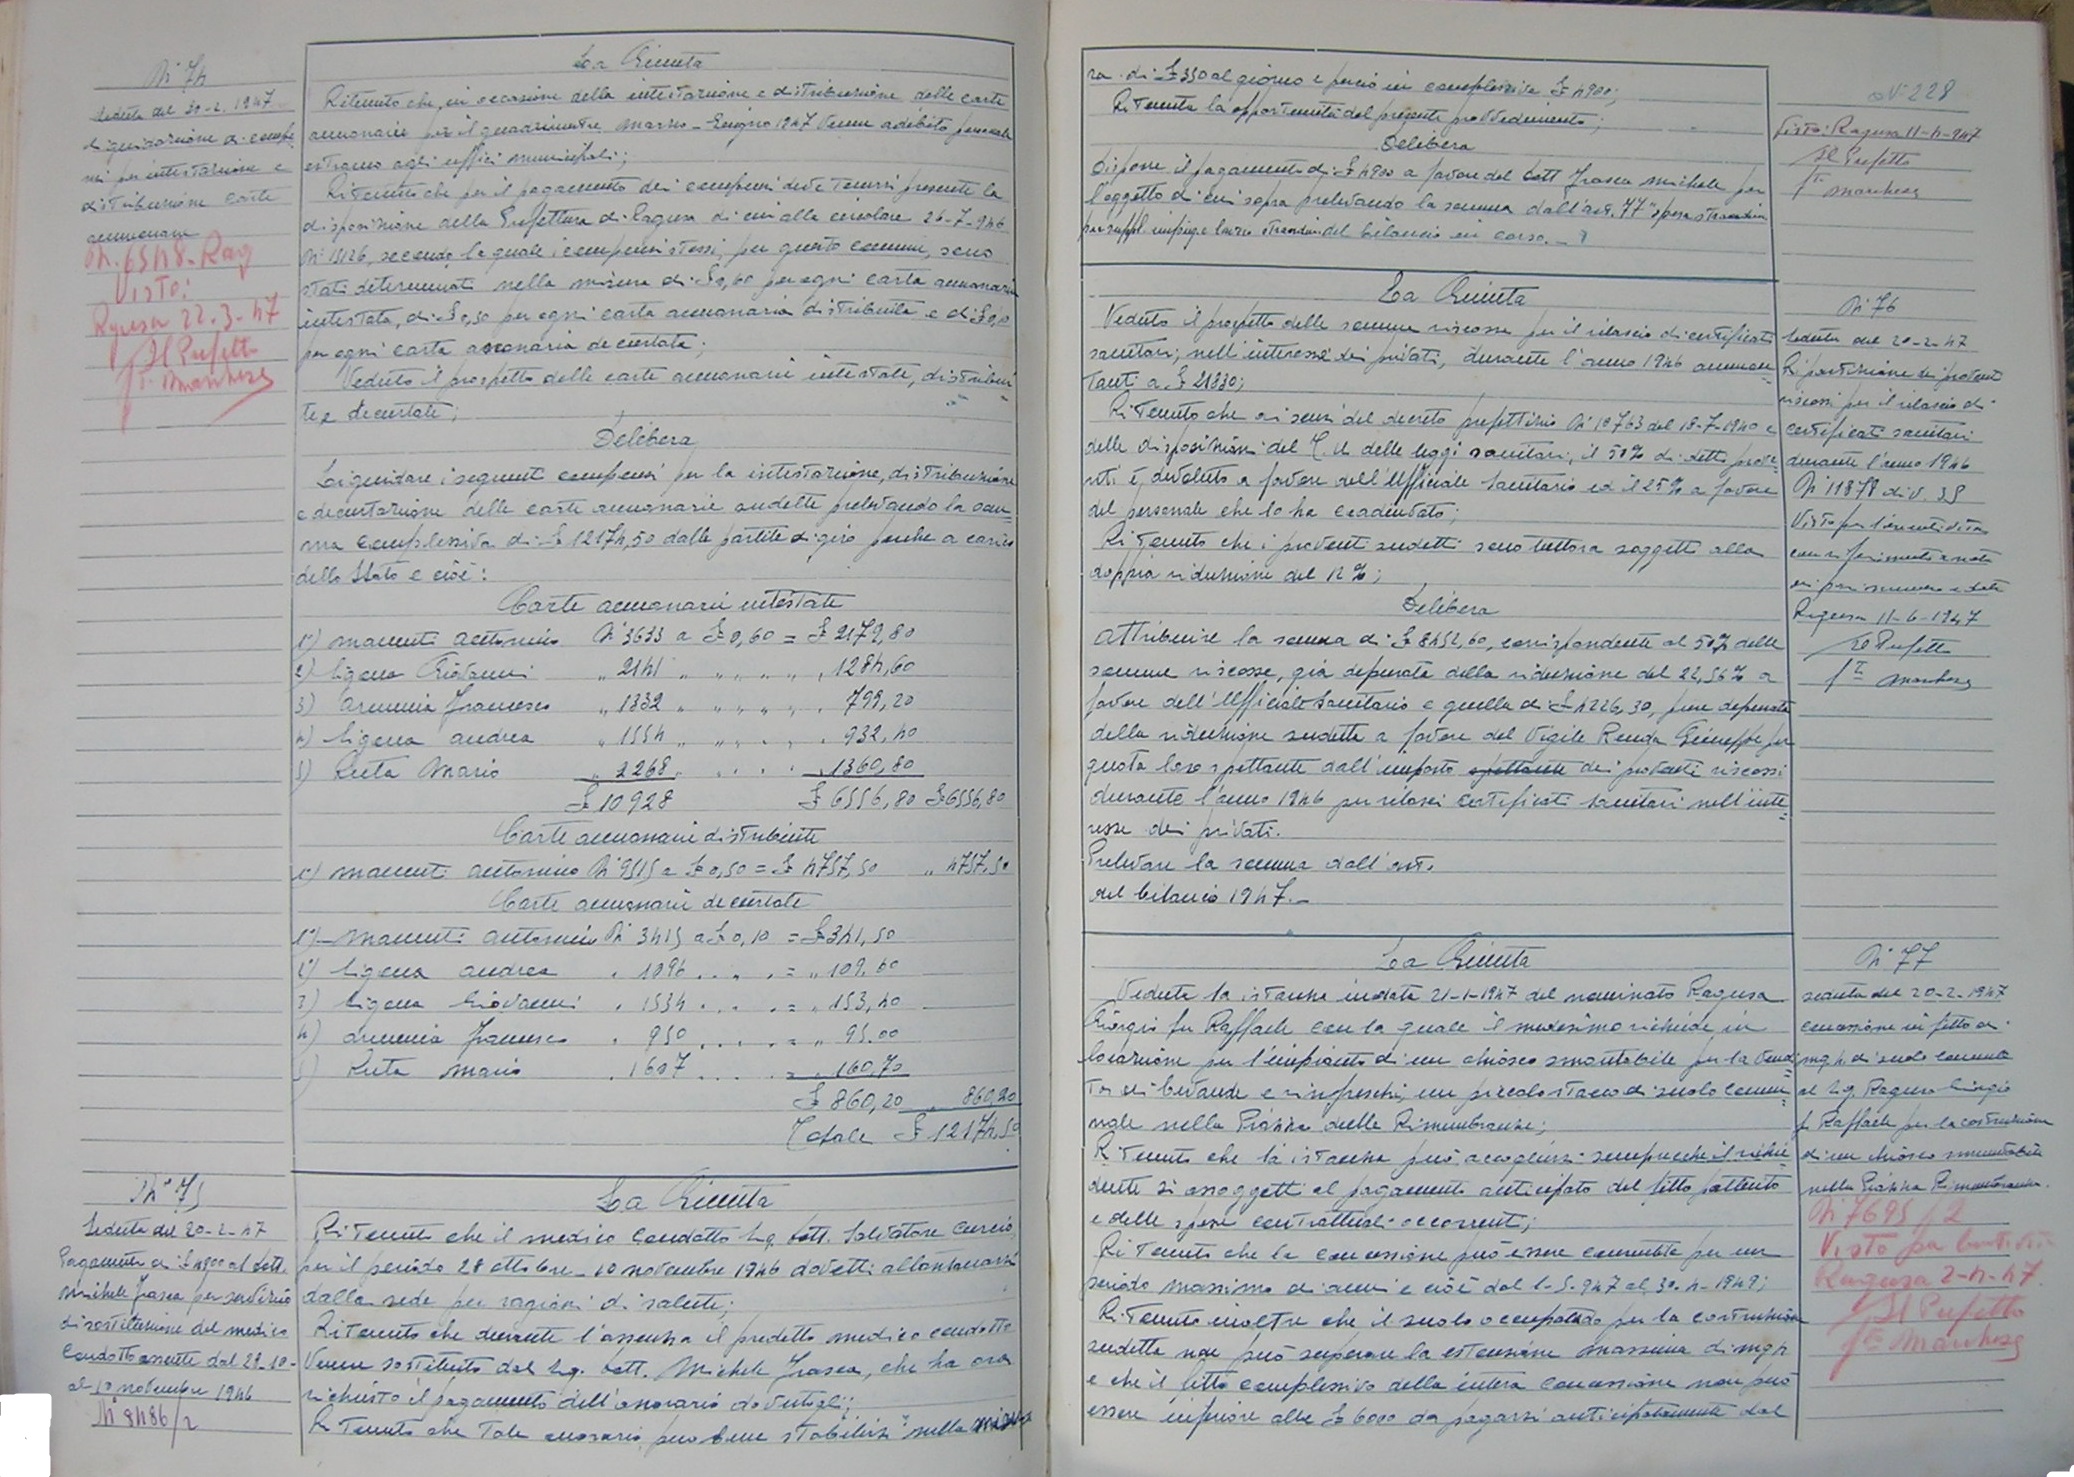 N° 74
Seduta del 20-2-1947
Liquidazione di compen
si per intestazione e
distribuzione carte
annonarie
N. 6548-Rag
Visto:
Ragusa 22-3-47
Il Prefetto
Fto Marchese
La Giunta
Ritenuto che, in occasione della intestazione e distribuzione delle carte
annonarie per il quadrimestre marzo-Giugno 1947 venne adibito personale
estraneo agli uffici municipali;
Ritenuto che per il pagamento dei compensi deve tenersi presente la
disposizione della Prefettura di Ragusa di cui alla circolare 26-7-946
N° 15126, secondo la quale i compensi stessi, per questo comune, sono
stati determinati nella misura di £ 0,60 per ogni carta annonaria
intestata, di £ 0,50 per ogni carta annonaria distribuita e di £ 0,10
per ogni carta annonaria decurtata;
Veduto il prospetto delle carte annonarie intestate, distribui
te e decurtate;
Delibera
Liquidare i seguenti compensi per la intestazione, distribuzione
e decurtazione delle carte annonarie sudette prelevando la som=
ma complessiva di £ 12174,50 dalle partite di giro perché a carico
dello Stato e cioè:
Carte annonarie intestate
1°) Macenti Antonino N° 3633 a £ 0,60 = £ 2179,80
2) Ligama Giovanni " 2141 " " " " " 1284,60
3) Arminia Francesco " 1332 " " " " " 799,20
4) Ligama Andrea " 1554 " " " " " 932,40
5) Ruta Mario " 2268 " " " " " 1360,80
£ 10928 £ 6556,80 £ 6556,80
Carte annonarie distribuite
1°) Macenti Antonino N° 9515 a £ 0,50 = £ 4757,50 " 4757,50
Carte annonarie decurtate
1°) Macenti Antonino N° 3415 a £ 0,10 = £ 341,50
2) Ligama Andrea " 1096 . . . = " 109.60
3) Ligama Giovanni " 1534 . . . = " 153,40
4) Arminia Francesco " 950 . . . = " 95.00
5) Ruta Mario . 1607 . . . = " 160,70
£ 860,20 " 860,20
Totale £ 12174,50
N° 75
Seduta del 20-2-47
Pagamento di £ 4900 al dott.
Michele Frasca per servizio
di sostituzione del medico
condotto assente dal 28-10-
al 10 novembre 1946
N° 8486/2
La Giunta
Ritenuto che il medico condotto Sig. Dott. Salvatore Curcio,
per il periodo 28 ottobre-10 novembre 1946 dovette allontanarsi
dalla sede per ragioni di salute;
Ritenuto che durante l'assenza il predetto medico condotto
venne sostituito dal Sig. Dott. Michele Frasca, che ha ora
richiesto il pagamento dell'onorario dovutogli;
Ritenuto che tale onorario può bene stabilirsi nella misu
ra di £ 350 al giorno e perciò in complessive £ 4900;
Ritenuta la opportunità del presente provvedimento;
Delibera
Dispone il pagamento di £ 4900 a favore del Dott Frasca Michele per
l'oggetto di cui sopra prelevando la somma dall'art. 77 "spese straordin
per suppl. impieg. e lavoro straordin. del bilancio in corso.
N° 228
Visto: Ragusa 11-4-947
Il Prefetto
Fto Marchese
La Giunta
Veduto il prospetto delle somme riscosse per il rilascio di certificati
sanitari, nell'interesse dei privati, durante l'anno 1946 ammon=
tanti a £ 21830;
Ritenuto che ai sensi del decreto prefettizio N° 10763 del 18-7-1940 e
delle disposizioni del T. U. delle leggi sanitari, il 50% di detti prove=
nti è devoluto a favore dell'Ufficiale Sanitario ed il 25% a favore
del personale che lo ha coadiuvato;
Ritenuto che i proventi sudetti sono tuttora soggetti alla
doppia riduzione del 12%;
Delibera
Attribuire la somma di £ 8452,60, corrispondente al 50% delle
somme riscosse, già depurata della riduzione del 22,56% a
favore dell'Ufficiale Sanitario e quella di £ 4226,30, pure depurata
della riduzione sudetta a favore del Vigile Renda Giuseppe per
quota loro spettante dall'importo spettante dei proventi riscossi
durante l'anno 1946 per rilasci certificati sanitari nell'inte=
resse dei privati.
Prelevare la somma dall'art.
del bilancio 1947.-
N° 76
Seduta del 20-2-47
Ripartizione dei proventi
riscossi per il rilascio di
certificati sanitari
durante l'anno 1946
N° 11878 div. 2S
Visto per l'esecutività
con riferimento a nota
di pari numero e data
Ragusa 11-6-1947
Il Prefetto
Fto Marchese
La Giunta
Veduta la istanza in data 21-1-1947 del nominato Ragusa
Giorgio fu Raffaele con la quale il medesimo richiede in
locazione per l'impianto di un chiosco smontabile per la vendi=
ta di bevande e rinfreschi, un piccolo stacco di suolo comu=
nale nella Piazza delle Rimembranze;
Ritenuto che la istanza può accogliersi semprecchè il richie=
dente si assoggetti al pagamento anticipato del fitto pattuito
e delle spese contrattuali occorrenti;
Ritenuto che la concessione può essere consentita per un
periodo massimo di anni e cioè dal 1-5-947 al 30-4-1949;
Ritenuto inoltre che il suolo occupando per la costruzione
sudetta non può superare la estensione massima di mq 4
e che il fitto complessivo della intera concessione non può
essere inferiore alle £ 6000 da pagarsi anticipatamente dal
N° 77
Seduta del 20-2-1947
Concessione in fitto di
mq 4 di suolo comunale
al Sig. Ragusa Giorgio
fu Raffaele per la costruzione
di un chiosco smontabile
nella Piazza Rimembranze.
N° 7695/2
Visto per l'esecutività
Ragusa 2-4-47
Il Prefetto
Fto Marchese